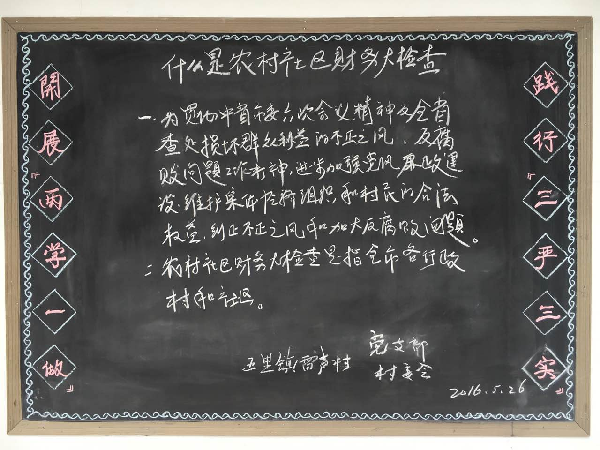 什么是农村社区财务大检查
開展兩学一做
一、为贯彻中省市委六次会议精神及全省
查处损坏群众利益的不正之风、反腐
败问题工作精神,进步加强党风廉政建
设,维护集体经济组织和村民的合法
权益,纠正不正之风和加大反腐败问题。
二、农村社区财务大检查是指全市各行政
村和社区。
五里镇雷声村
党支部
村委会
2016.5.26
践行三严三实